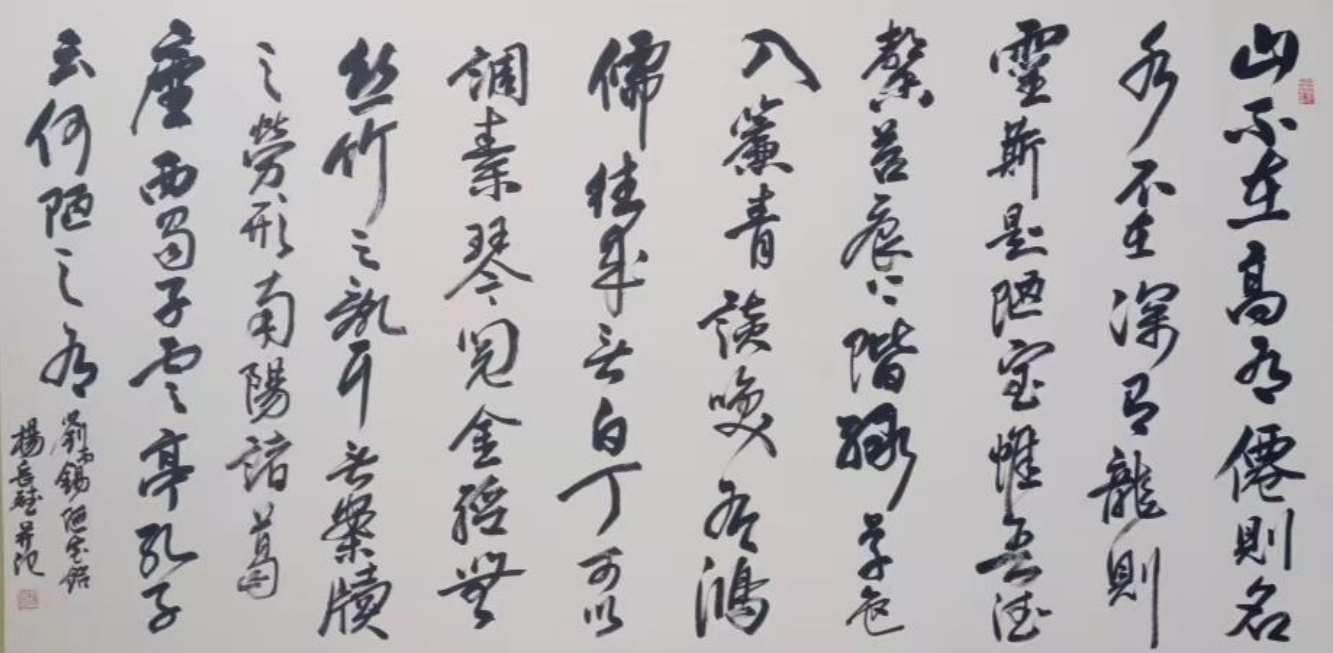 山不在高有僊則名
水不在深有龍則
靈斯是陋室惟吾德
馨苔痕上階綠草色
入簾青談咲有鴻
儒往来无白丁可以
調素琴閱金經無
絲竹之亂耳无案牘
之勞形南陽諸葛
廬西蜀子雲亭孔子
云何陋之有
劉禹錫陋室銘
楊